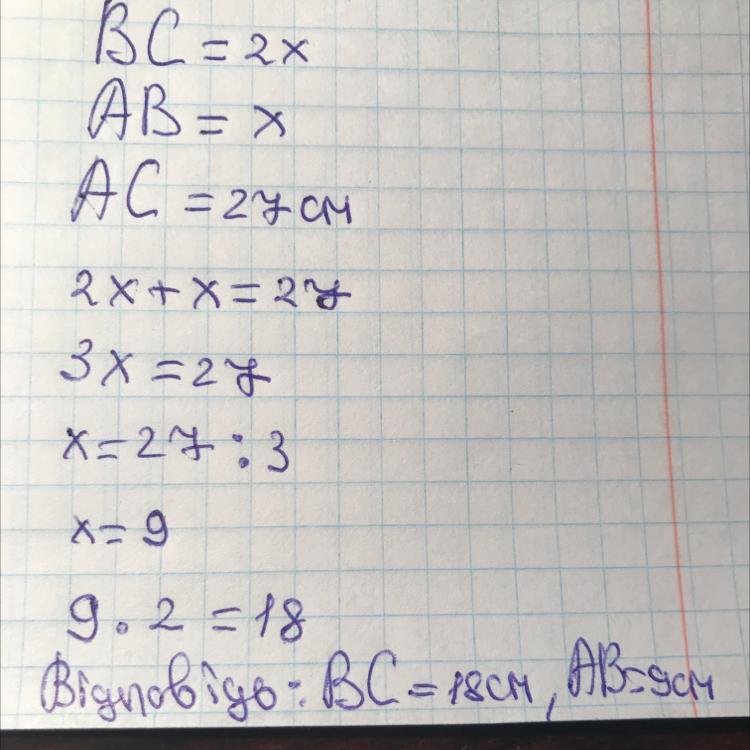 BC = 2x
AB = x
AC = 27 см
2x + x = 27
3x = 27
x = 27 : 3
x = 9
9 . 2 = 18
Відповідь: BC = 18см, AB = 9см